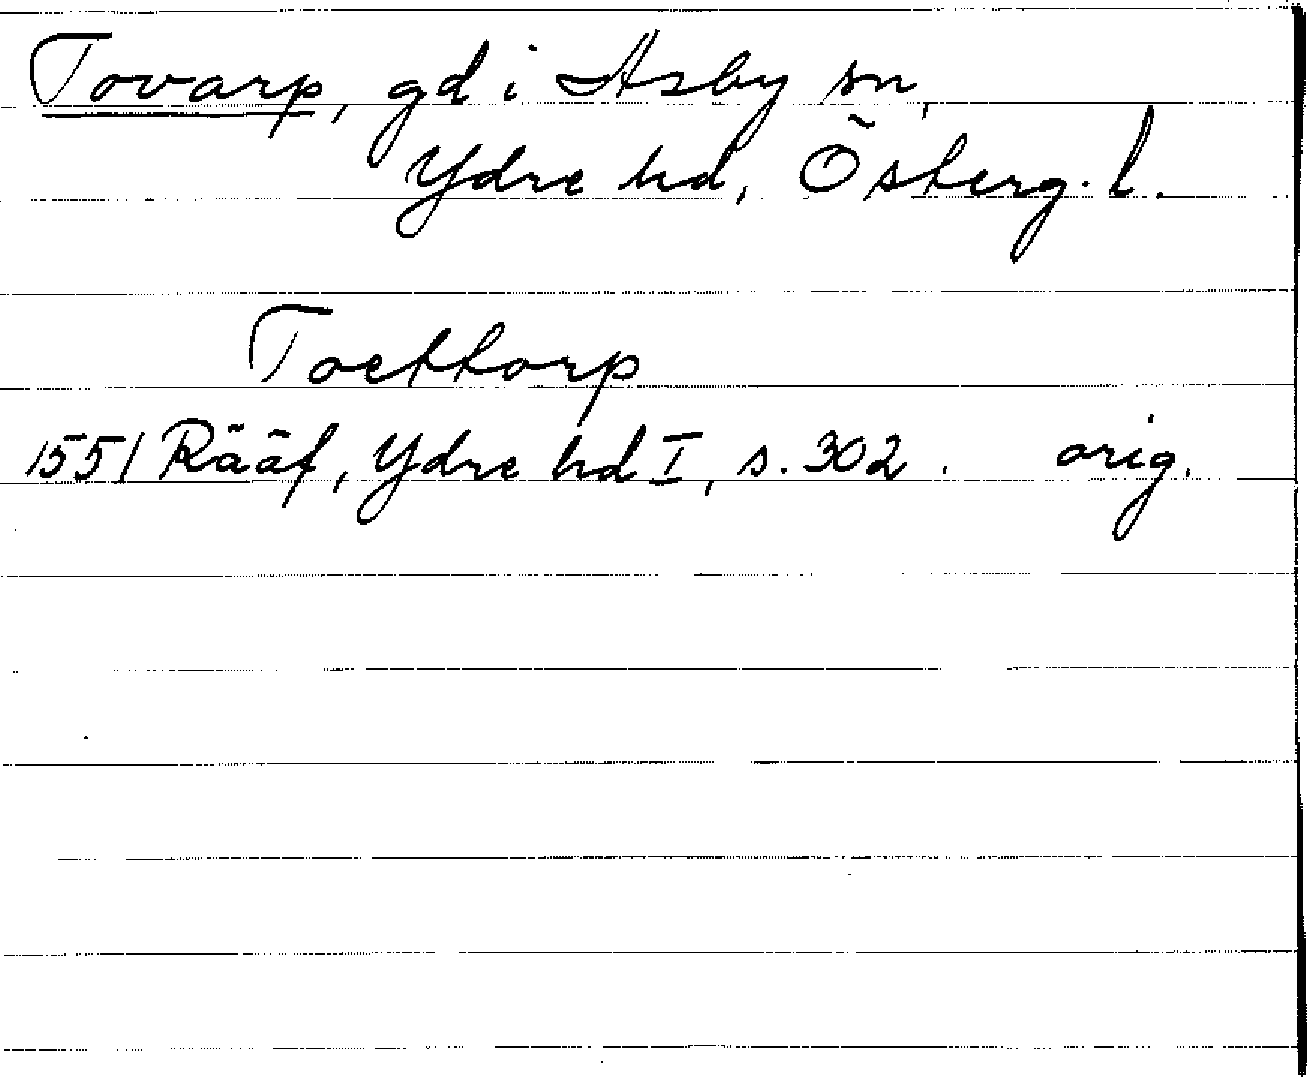 Tovarp, gd i Asby sn,
Ydre hd, Österg. l.
Toettorp
1551 Rääf, Ydre hd I, s. 302. orig.